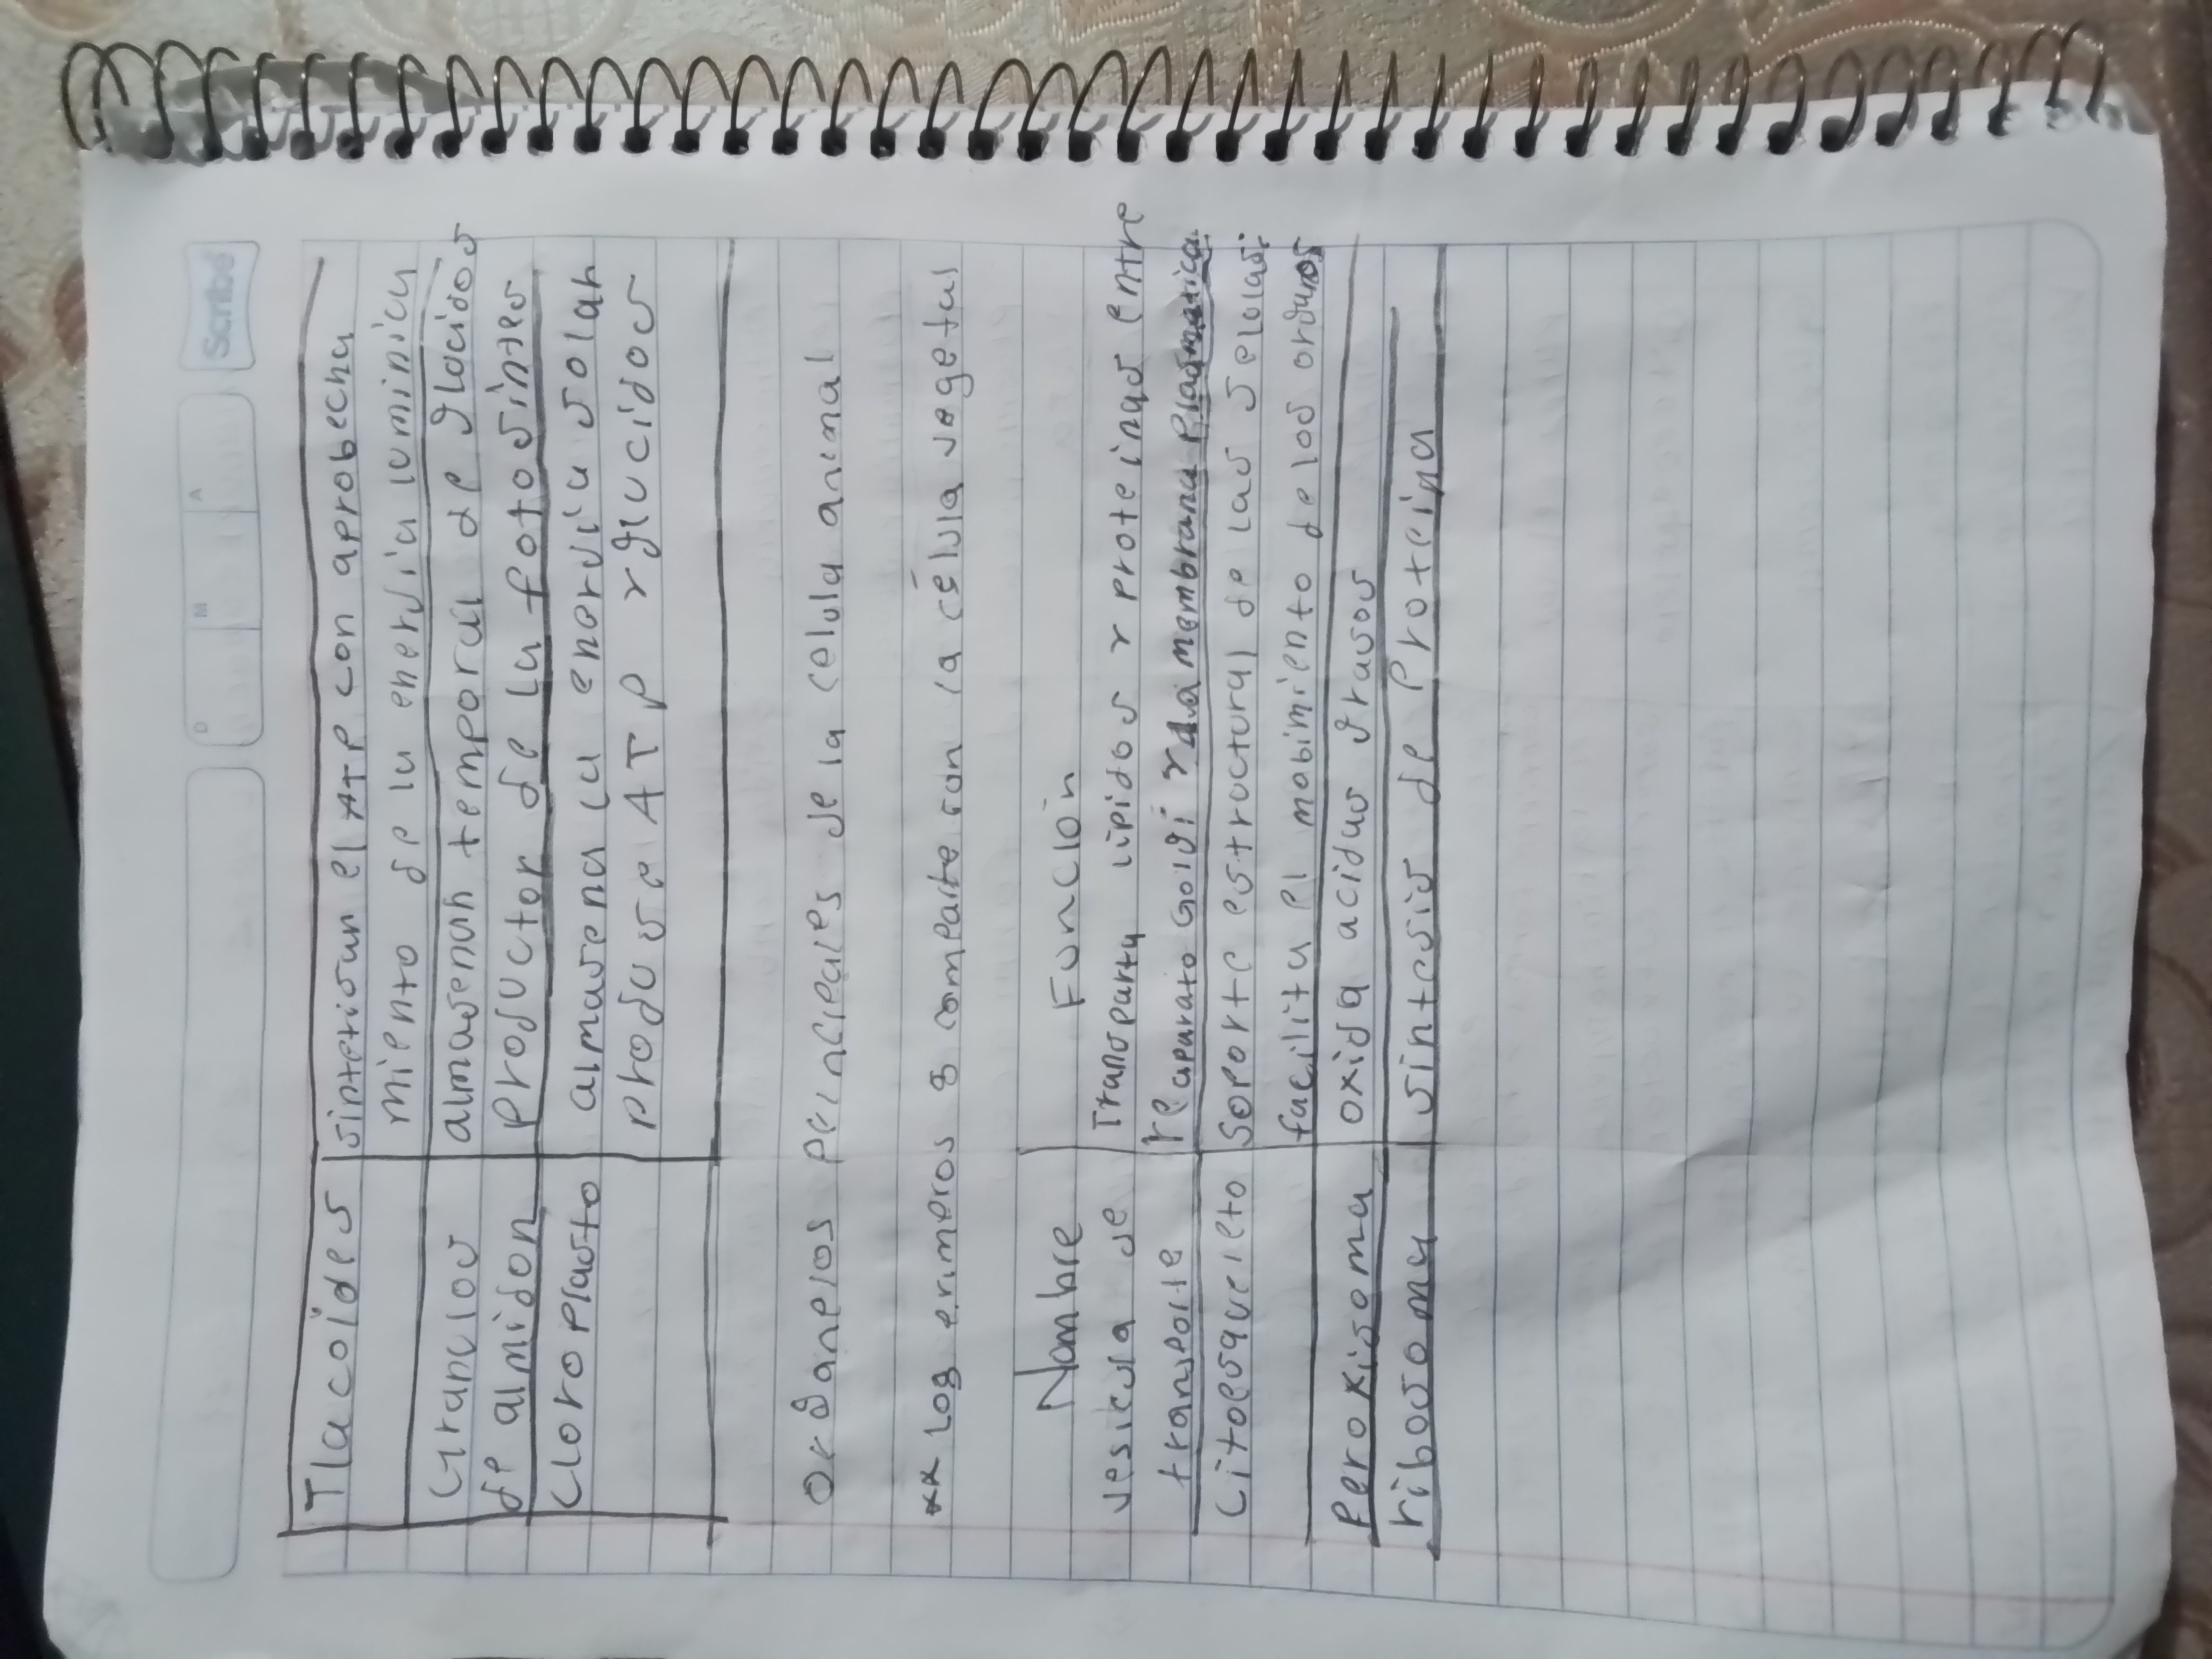 Scribe
D M A
Tlacoides sintetisan el ATP con aprobecha
miento de la energia luminica
Granulos almasenan temporal de glucidos
de almidon Productor de la fotosintes
Cloroplasto almasena la energia solar
produse ATP y glucidos
Organelos principales de la celula animal
** Los primeros 8 comparte con la célula vegetal
Nombre Función
vesicula de Transporta lipidos y proteinas entre
transporte re aparato Golgi y la membrana plasmatica
Citoesquelto Soporte estructural de las selulas
facilita el mobimiento de los organos
Peroxisoma oxida acidas grasos
ribosoma sintesis de Proteina